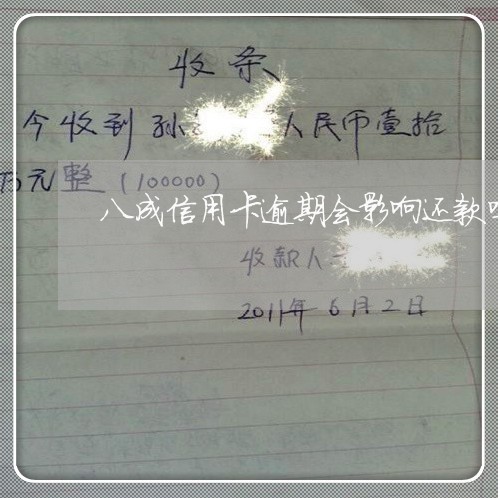 收条
今收到孙 人民币壹拾
万元整(100000)
八成信用卡逾期会影响还款
收款人
2011年6月2日